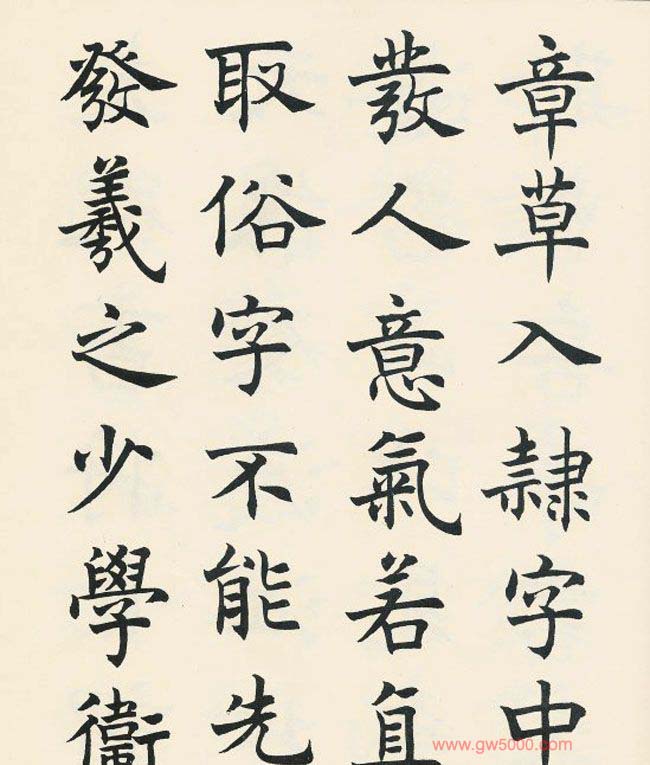 章草入隸字中
發人意氣若直
取俗字不能先
發羲之少學衛
www.gw5000.com